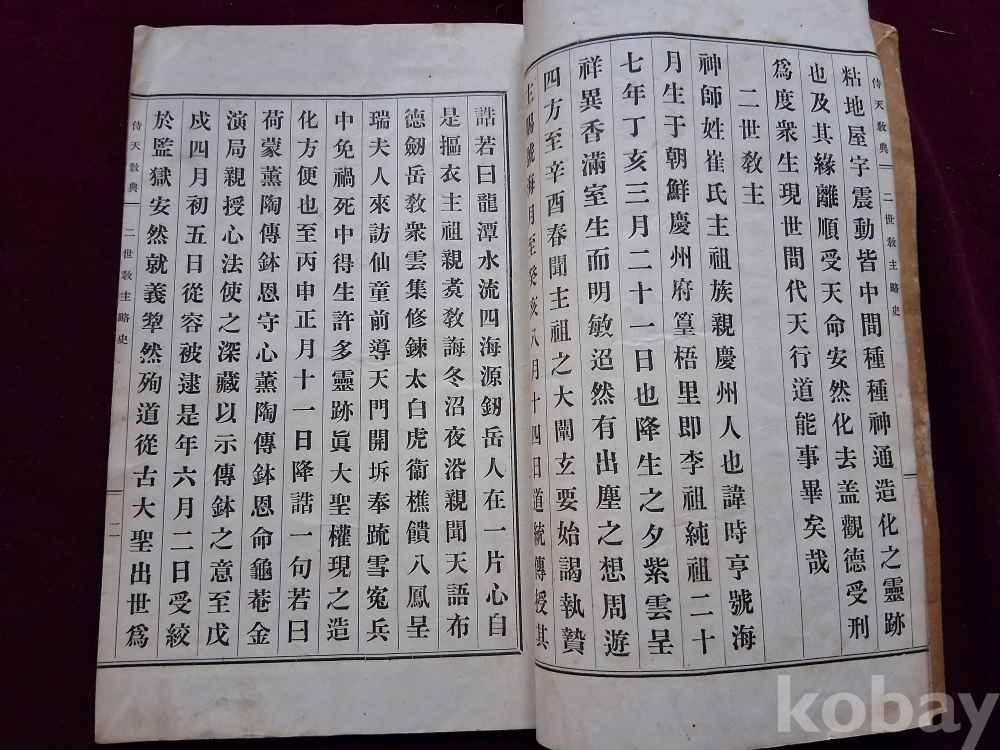 侍天敎典 二世敎主略史
粘地屋宇震動皆中間種種神通造化之靈跡
也及其緣離順受天命安然化去盖觀德受刑
爲度衆生現世間代天行道能事畢矣哉
二世敎主
神師姓崔氏主祖族親慶州人也諱時亨號海
月生于朝鮮慶州府篁梧里即李祖純祖二十
七年丁亥三月二十一日也降生之夕紫雲呈
祥異香滿室生而明敏迢然有出塵之想周遊
四方至辛酉春聞主祖之大闡玄要始謁執贄
主賜號海月至癸亥八月十四日道統傳授其
誥若曰龍潭水流四海源釰岳人在一片心自
是摳衣主祖親炙敎誨冬沼夜浴親聞天語布
德劒岳敎衆雲集修鍊太白虎衞樵饋八鳳呈
瑞夫人來訪仙童前導天門開坼奉䟽雪寃兵
中免禍死中得生許多靈跡眞大聖權現之造
化方便也至丙申正月十一日降誥一句若曰
荷蒙薰陶傳鉢恩守心薰陶傳鉢恩命龜菴金
演局親授心法使之深藏以示傳鉢之意至戊
戌四月初五日從容被逮是年六月二日受絞
於監獄安然就義犂然殉道從古大聖出世爲
侍天敎典 二世敎主略史 二
kobay